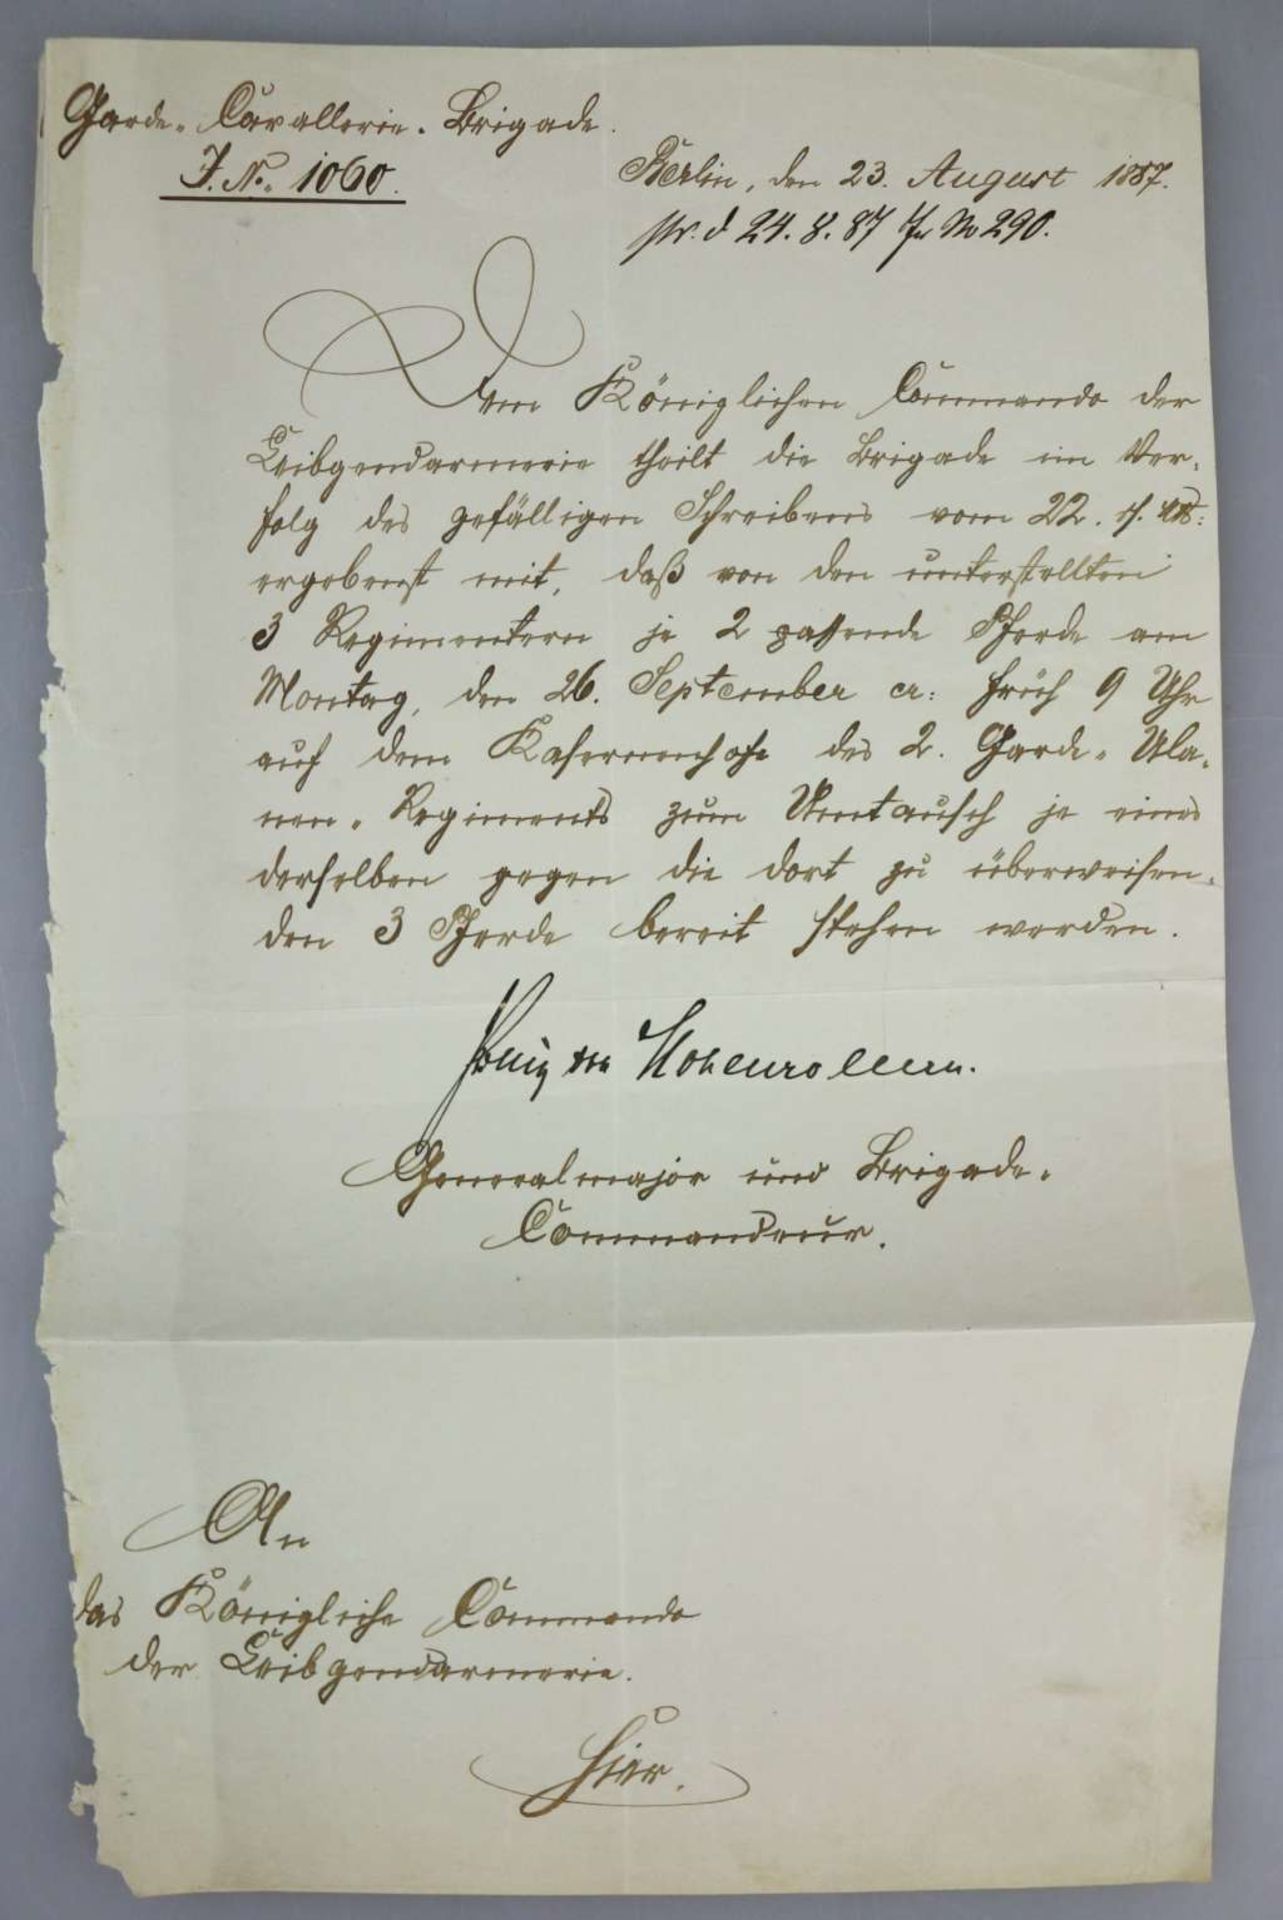 Garde-Cavallerie-Brigade.
J. No. 1060.
Berlin, den 23. August 1887.
pr. d 24. 8. 87 Jr No 290.
Dem Königlichen Commando der
Leibgendarmerie theilt die Brigade im Ver-
folg des gefälligen Schreibens vom 22. d. Mts:
ergebenst mit, daß von den unterstellten
3 Regimentern je 2 passende Pferde am
Montag, den 26. September cr: früh 9 Uhr
auf dem Kasernenhofe des 2. Garde-Ula-
nen-Regiments zum Umtausch je eines
derselben gegen die dort zu überweisen-
den 3 Pferde bereit stehen werden.
Prinz von Hohenzollern.
Generalmajor und Brigade-
Commandeur.
An
das Königliche Commando
der Leibgendarmerie.
Hier.